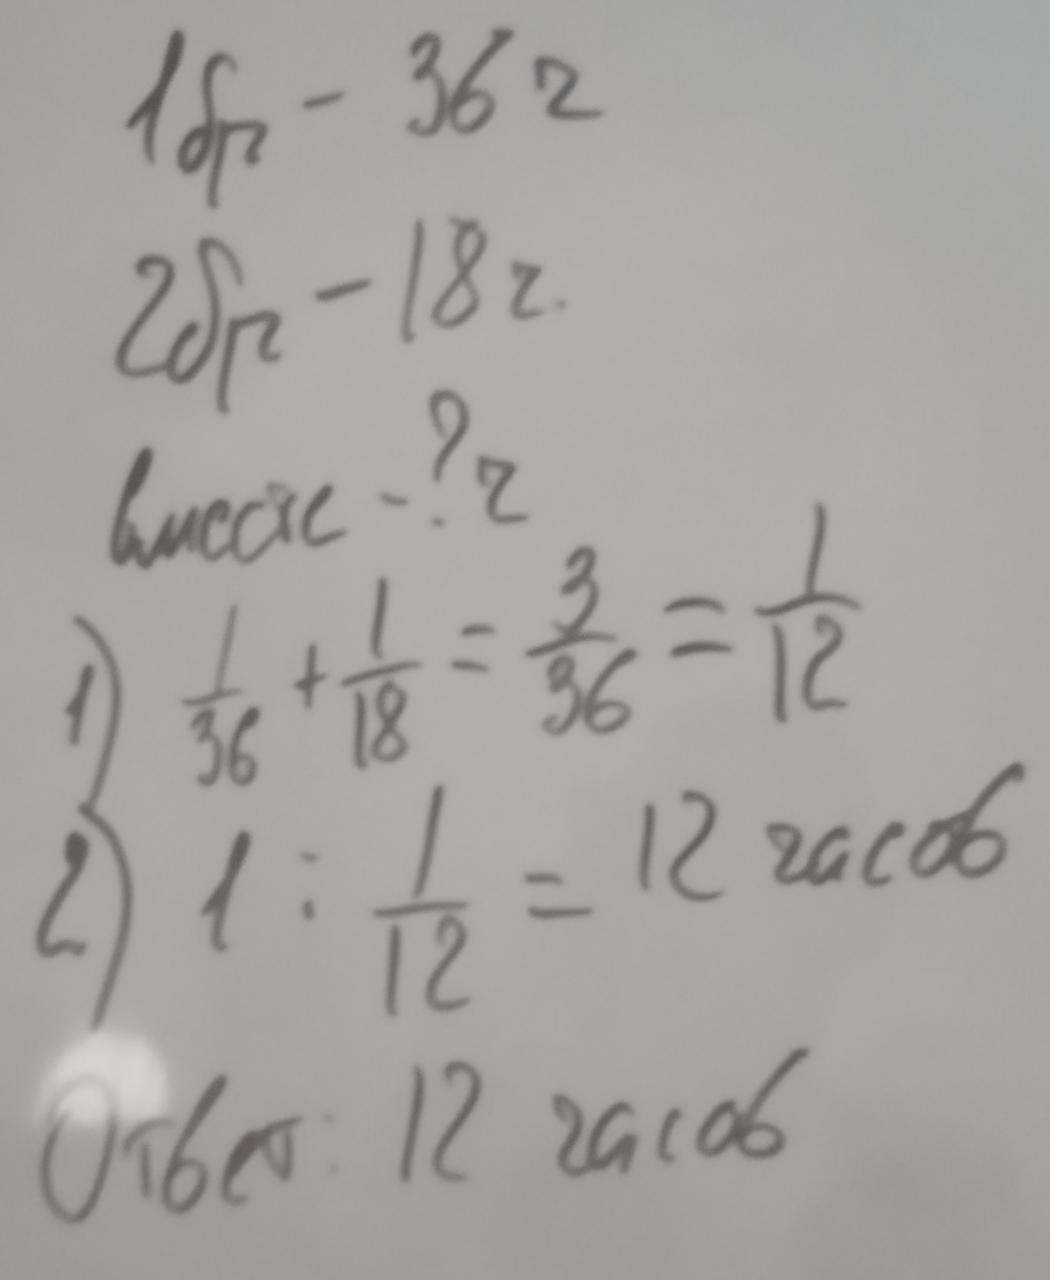 1бр - 36 ч
2бр - 18 ч.
вместе - ? ч
1) 1/36 + 1/18 = 3/36 = 1/12
2) 1 : 1/12 = 12 часов
Ответ: 12 часов